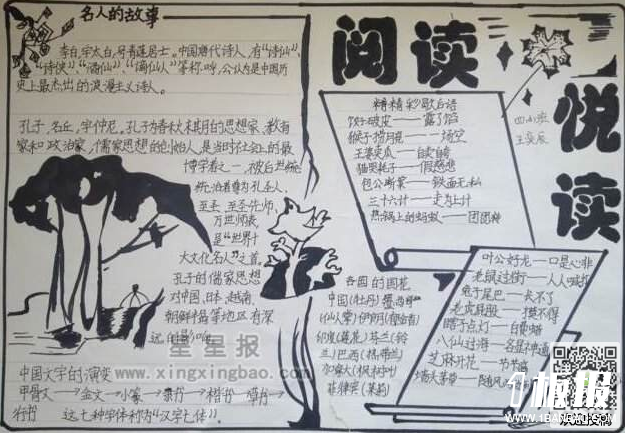 名人的故事
李白,字太白,号青莲居士。中国唐代诗人,有"诗仙"、
"诗侠"、"酒仙"、"谪仙人"等称呼,公认为是中国历
史上最杰出的浪漫主义诗人。
孔子,名丘,字仲尼。孔子为春秋末期的思想家、教育
家和政治家,儒家思想的创始人,是当时社会上的最
博学者之一,被后世
统治者尊为孔圣人、
至圣、至圣先师、
万世师表,
是"世界十
大文化名人"之首。
孔子的儒家思想
对中国、日本、越南、
朝鲜
等地区有深
远的影响。
中国文字的演变
甲骨文→金文→小篆→隶书→楷书→草书→
行书 这七种字体称为"汉字七体"。
阅读
悦读
四
王
精精彩歇后语
饺子破皮——露了馅
猴子捞月亮——一场空
王婆卖瓜——自卖自夸
猫哭耗子——假慈悲
包公断案——铁面无私
三十六计——走为上计
热锅上的蚂蚁——团团转
叶公好龙——口是心非
老鼠过街——人人喊打
兔子尾巴——长不了
老虎屁股——摸不得
瞎子点灯——白费蜡
八仙过海——各显神通
芝麻开花——节节高
墙头茅草——随风
各国的国花
中国(牡丹)墨西哥
(仙人掌)伊朗(郁金香)
印度(莲花)芬兰(铃
兰)巴西(
菲律宾(茉莉)
星星报
www.xingxingbao.com
1板报
WWW.1BANBAO.COM